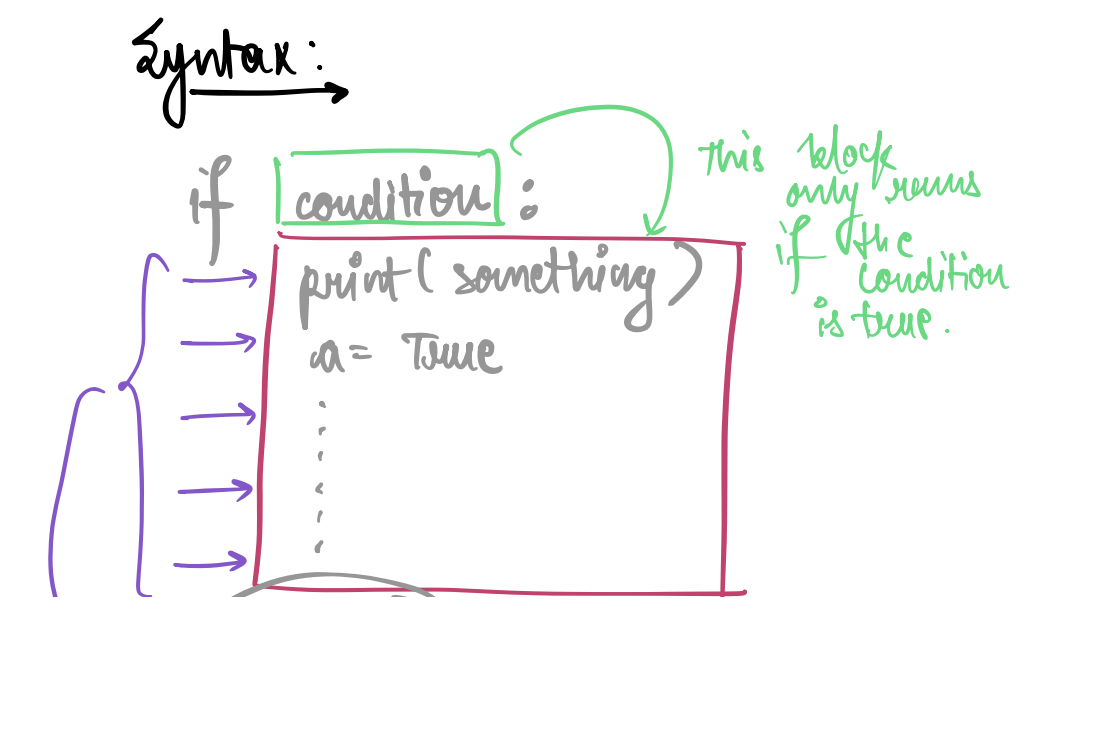 Syntax:
if condition :
print( something )
a = True
.
.
.
.
.
.
This block
only runs
if the
condition
is true.